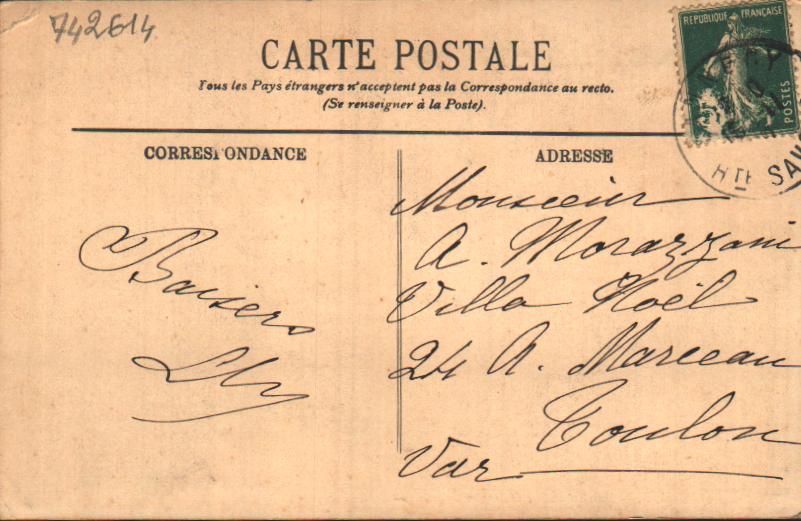 742614
CARTE POSTALE
Tous les Pays étrangers n'acceptent pas la Correspondance au recto.
(Se renseigner à la Poste).
REPUBLIQUE FRANÇAISE
POSTES
HTE SAV
CORRESPONDANCE
ADRESSE
Baisers
Lly
Monsieur
A. Morazzani
Villa Noël
24 A. Marceau
Toulon
Var